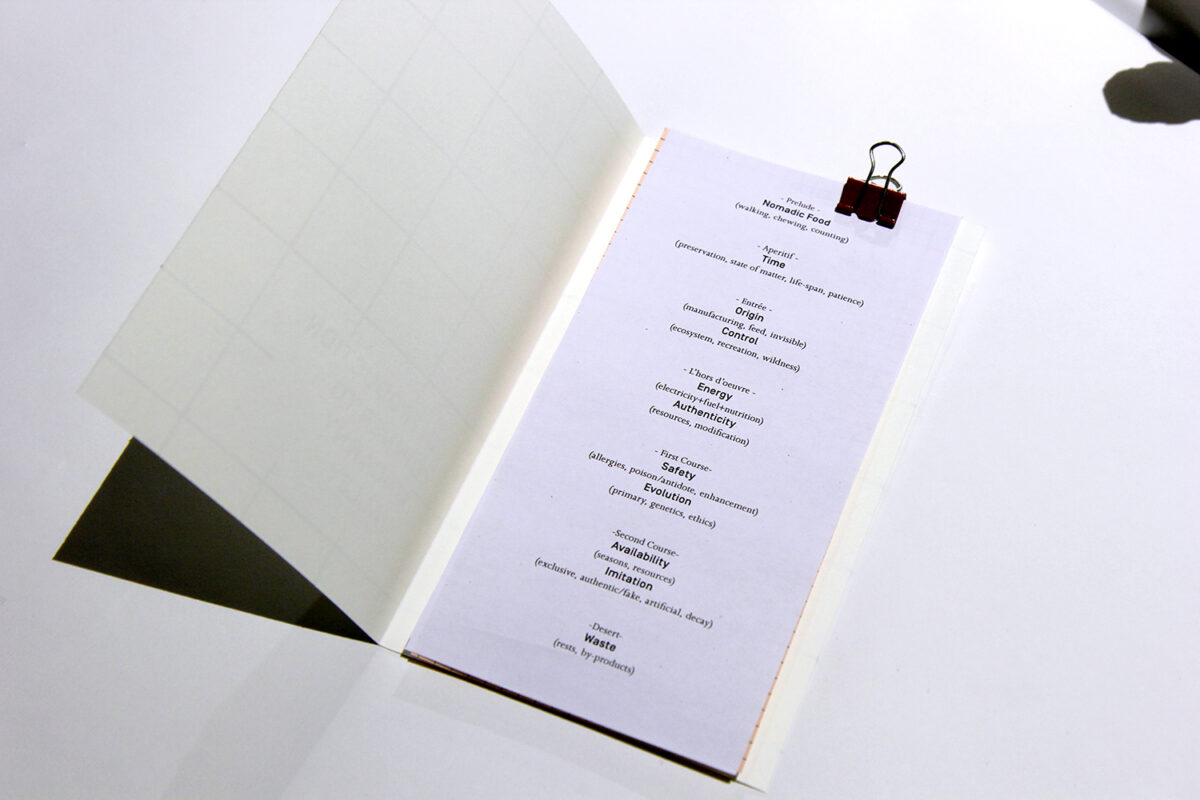 - Prelude -
Nomadic Food
(walking, chewing, counting)
- Aperitif -
Time
(preservation, state of matter, life-span, patience)
- Entrée -
Origin
(manufacturing, feed, invisible)
Control
(ecosystem, recreation, wildness)
- L'hors d'oeuvre -
Energy
(electricity+fuel+nutrition)
Authenticity
(resources, modification)
- First Course-
Safety
(allergies, poison/antidote, enhancement)
Evolution
(primary, genetics, ethics)
-Second Course-
Availability
(seasons, resources)
Imitation
(exclusive, authentic/fake, artificial, decay)
-Desert-
Waste
(rests, by-products)